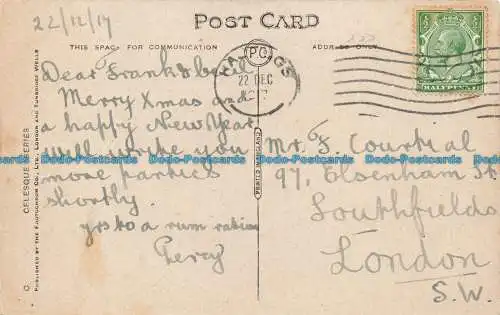 22/12/17
POST CARD
THIS SPACE FOR COMMUNICATION
ADDRESS ONLY
22 DEC
HALFPENNY
Dear Frank &
Merry Xmas and
a happy New Year
Will write you
more partics
shortly.
yrs to a rum ration
Percy
Mr. F. Courtial
97, Elsenham St
Southfields
London
S.W.
CELESQUE SERIES
PUBLISHED BY THE PHOTOCHROM CO., LTD., LONDON AND TUNBRIDGE WELLS
PRINTED IN ENGLAND
Dodo-Postcards Dodo-Postcards Dodo-Postcards Dodo-Postcards